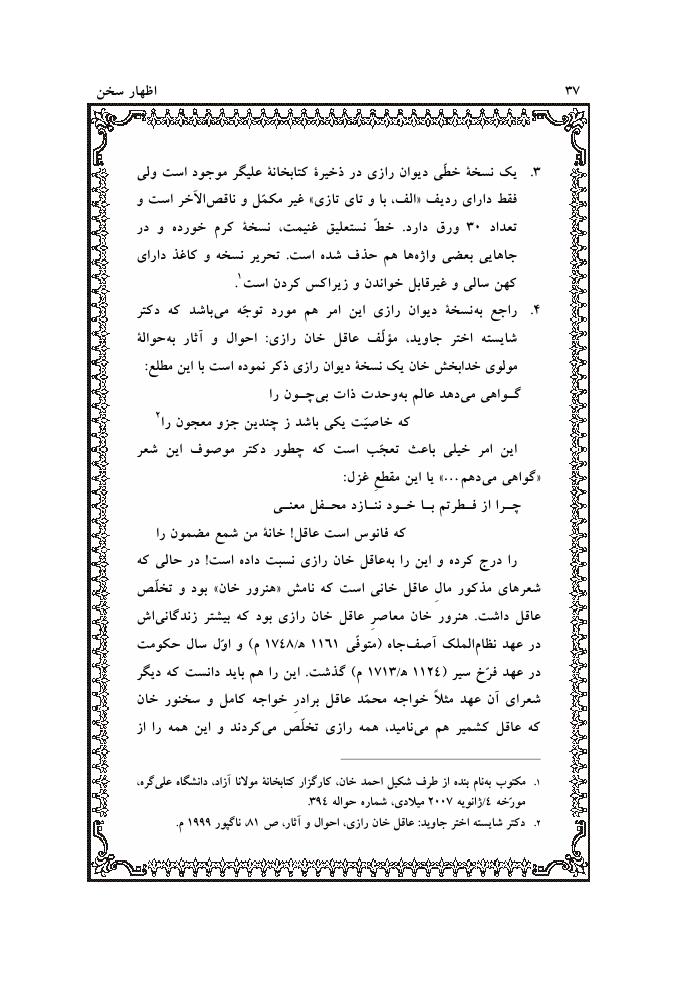 ۳۷ اظهار سخن
۳. یک نسخهٔ خطّی دیوان رازی در ذخیرهٔ کتابخانهٔ علیگر موجود است ولی
فقط دارای ردیف «الف، با و تای تازی» غیر مکمّل و ناقص‌الآخر است و
تعداد ۳۰ ورق دارد. خطّ نستعلیق غنیمت، نسخهٔ کرم خورده و در
جاهایی بعضی واژه‌ها هم حذف شده است. تحریر نسخه و کاغذ دارای
کهن سالی و غیرقابل خواندن و زیراکس کردن است۱.
۴. راجع به‌نسخهٔ دیوان رازی این امر هم مورد توجّه می‌باشد که دکتر
شایسته اختر جاوید، مؤلّف عاقل خان رازی: احوال و آثار به‌حوالهٔ
مولوی خدابخش خان یک نسخهٔ دیوان رازی ذکر نموده است با این مطلع:
گـواهی می‌دهد عالم به‌وحدت ذات بی‌چـون را
که خاصیّت یکی باشد ز چندین جزو معجون را۲
این امر خیلی باعث تعجّب است که چطور دکتر موصوف این شعر
«گواهی می‌دهم...» یا این مقطعِ غزل:
چـرا از فـطرتم بـا خـود ننـازد محـفل معنـی
که فانوس است عاقل! خانهٔ من شمع مضمون را
را درج کرده و این را به‌عاقل خان رازی نسبت داده است! در حالی که
شعرهای مذکور مالِ عاقل خانی است که نامش «هنرور خان» بود و تخلّص
عاقل داشت. هنرور خان معاصرِ عاقل خان رازی بود که بیشتر زندگانی‌اش
در عهد نظام‌الملک آصف‌جاه (متوفّی ۱۱۶۱ ه‍/۱۷۴۸ م) و اوّل سال حکومت
در عهد فرّخ سیر (۱۱۲۴ ه‍/۱۷۱۳ م) گذشت. این را هم باید دانست که دیگر
شعرای آن عهد مثلاً خواجه محمّد عاقل برادرِ خواجه کامل و سخنور خان
که عاقل کشمیر هم می‌نامید، همه رازی تخلّص می‌کردند و این همه را از
۱. مکتوب به‌نام بنده از طرف شکیل احمد خان، کارگزار کتابخانهٔ مولانا آزاد، دانشگاه علی‌گره،
مورّخه ۴/ژانویه ۲۰۰۷ میلادی، شماره حواله ۳۹۴.
۲. دکتر شایسته اختر جاوید: عاقل خان رازی، احوال و آثار، ص ۸۱، ناگپور ۱۹۹۹ م.